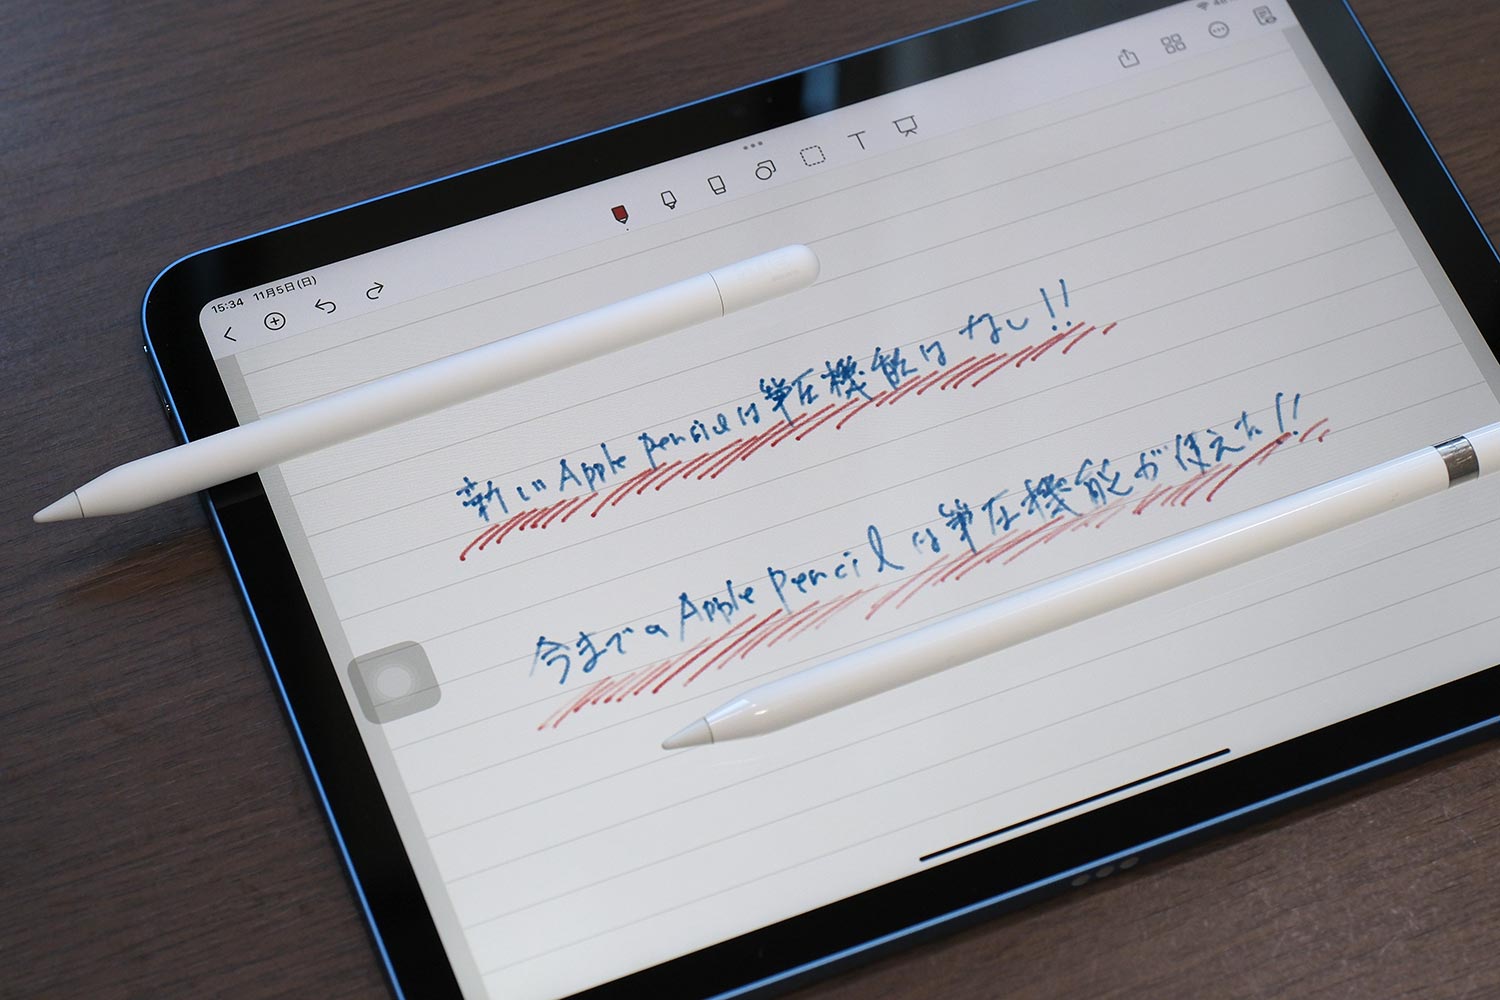 15:34 11月5日(日)
新しいApple Pencilは筆圧機能はなし!!
今までのApple Pencilは筆圧機能が使えた!!